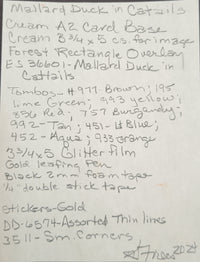 Mallard Duck in Cattails
Cream A2 Card Base
Cream 3 3/4 x 5 c.s. for image
Forest Rectangle Overlay
ES 36601 - Mallard Duck in
Cattails
Tombos - #977 Brown; 195
Lime Green; 993 yellow;
856 Red; 757 Burgundy;
992 - Tan; 451 - Lt Blue;
452 - Aqua; 933 orange
3 3/4 x 5 Glitter film
Gold leafing Pen
Black 2 mm foam tape
1/4" double stick tape
Stickers - Gold
DD-6574 - Assorted Thin lines
3511 - Sm. Corners
2024